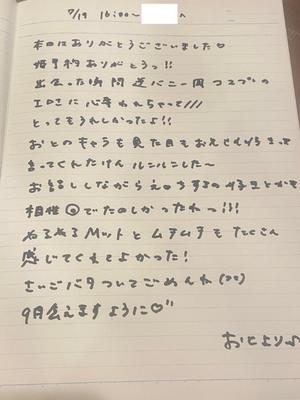 7/19 16:00~ さんへ
本日はありがとうございました♡
指予約ありがとうっ!!
出会った瞬間逆バニー同コスプレの
エロさに心奪われちゃって///
とってもうれしかったよ!!
おとのキャラも見た目もお
きてくれたけん ルンルンした〜
お話ししながらえ○ちするの好きとかも
相性◎でたのしかったわっ!!!
ぬるぬるMットとムチムチもたくさん
感じてくれてよかった!
さいごバタついてごめんね(>_<)
9月会えますように♡"
おとより♪